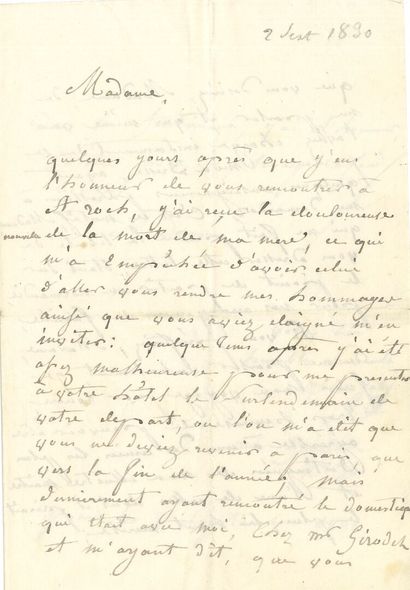 2 Sept 1830
Madame,
quelques yours après que y'eus
l'honneur de vous rencontrer à
St roch, y'ai reçue la douloureuse
nouvelle de la mort de ma mere, ce qui
m'a Empêchée d'avoir celui
d'aller vous rendre mes hommages
ainsé que vous aviez daigné m'en
inviter: quelque tems après y'ai été
assez malheureuse pour me presenter
à votre hôtel le surlendemain de
votre depart, ou l'on m'a dit que
vous ne deviez revenir à paris que
vers la fin de l'année, mais
dernierement ayant rencontré le domestique
qui était avec moi, Chez mr Girodet
et m'ayant dit, que vous